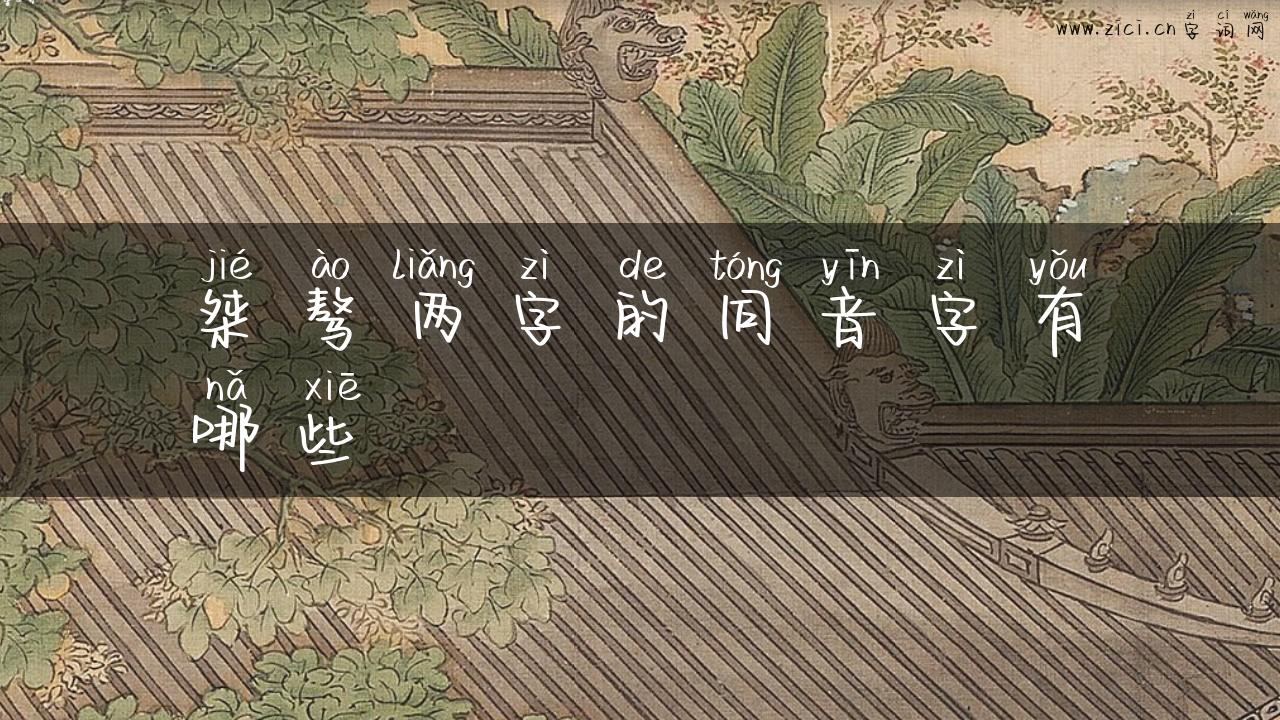 zì cí wǎng
www.zici.cn 字 词 网
jié ào liǎng zì de tóng yīn zì yǒu
桀 骜 两 字 的 同 音 字 有
nǎ xiē
哪 些